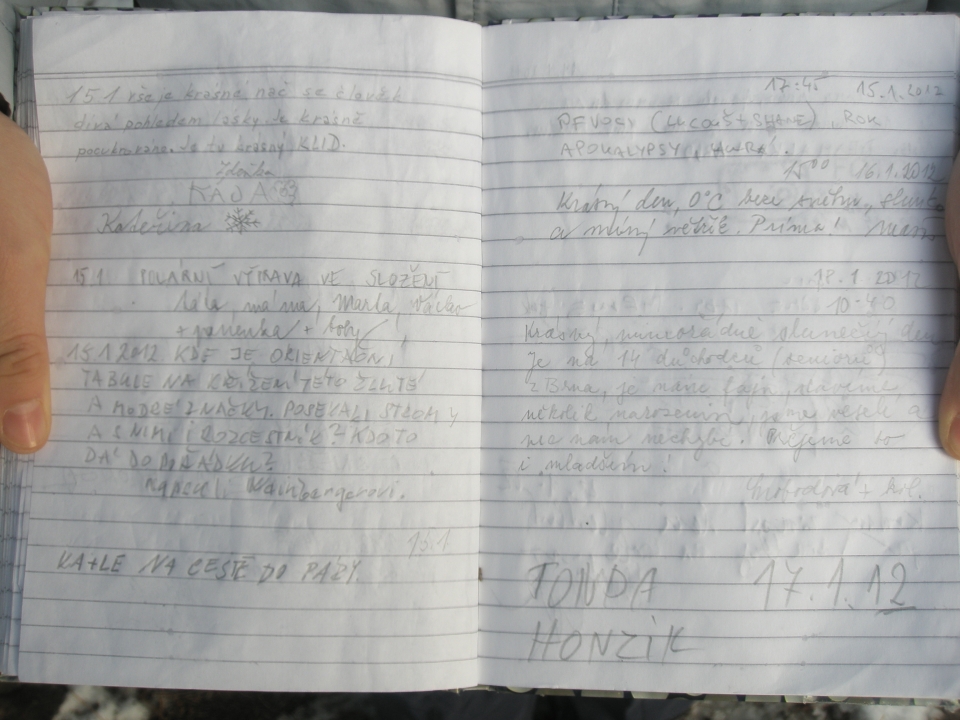 15.1 vše je krásné nač se člověk
dívá pohledem lásky. Je krásně
pocukrováno. Je tu krásný KLID.
Zdeňka
KÁJA
Kateřina
15.1 POLÁRNÍ VÝPRAVA VE SLOŽENÍ
táta máma, Marta, Václav
+ boby
15.1.2012 KDE JE ORIENTAČNÍ
TABULE NA KŘÍŽENÍ TÉTO ŽLUTÉ
A MODRÉ ZNAČKY. POSEKALI STROMY
A S NIMI I ROZCESTNÍK? KDO TO
DÁ DO POŘÁDKU?
napsali
15.1
KA+LE NA CESTĚ DO
17:45 15.1.2012
ROK
APOKALYPSY
15⁰⁰ 16.1.2012
Krásný den, 0°C sluníčko
a mírný větřík. Príma!
18.1.2012
10-40
Krásný, mimořádně slunečný den
Je nás 14 důchodců (seniorů)
z Brna, je nám fajn, slavíme
několik narozenin, jsme veselí a
nic nám nechybí. Přejeme to
i mladším!
Svobodová + kol.
TONDA 17.1.12
HONZÍK